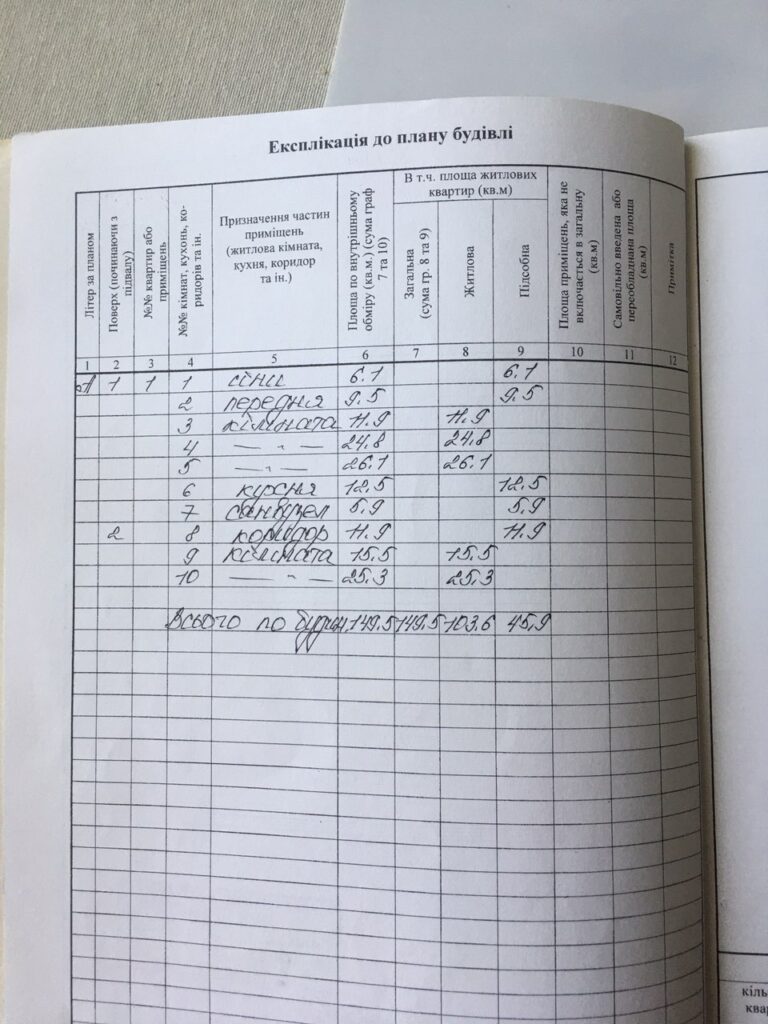 Експлікація до плану будівлі
Літер за планом
Поверх (починаючи з підвалу)
№№ квартир або приміщень
№№ кімнат, кухонь, коридорів та ін.
Призначення частин приміщень (житлова кімната, кухня, коридор та ін.)
Площа по внутрішньому обміру (кв.м.) (сума граф 7 та 10)
В т.ч. площа житлових квартир (кв.м)
Загальна (сума гр. 8 та 9)
Житлова
Підсобна
Площа приміщень, яка не включається в загальну (кв.м)
Самовільно введена або переобладнана площа (кв.м)
Примітка
1 2 3 4 5 6 7 8 9 10 11 12
А 1 1 1 сіни 6.1 6.1
2 передня 9.5 9.5
3 кімната 11.9 11.9
4 — " — 24.8 24.8
5 — " — 26.1 26.1
6 кухня 12.5 12.5
7 санвузел 5.9 5.9
2 8 коридор 11.9 11.9
9 кімната 15.5 15.5
10 — " — 25.3 25.3
Всього по будин. 149.5 149.5 103.6 45.9
кіль
квар